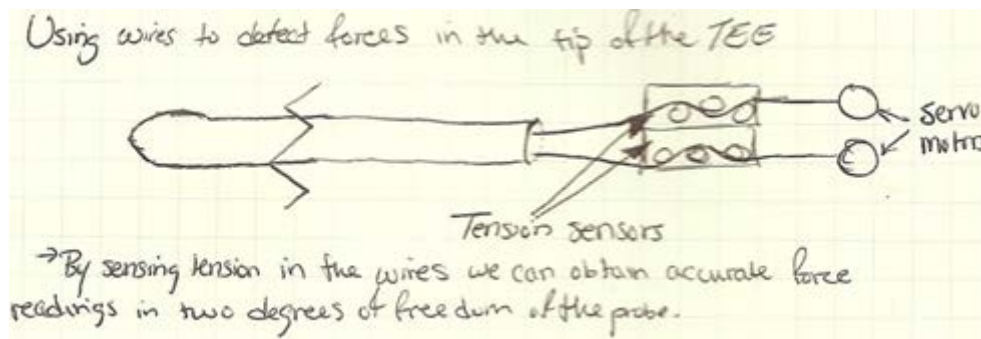 Using wires to detect forces in the tip of the TEE
servo
motors
Tension sensors
→By sensing tension in the wires we can obtain accurate force
readings in two degrees of freedom of the probe.